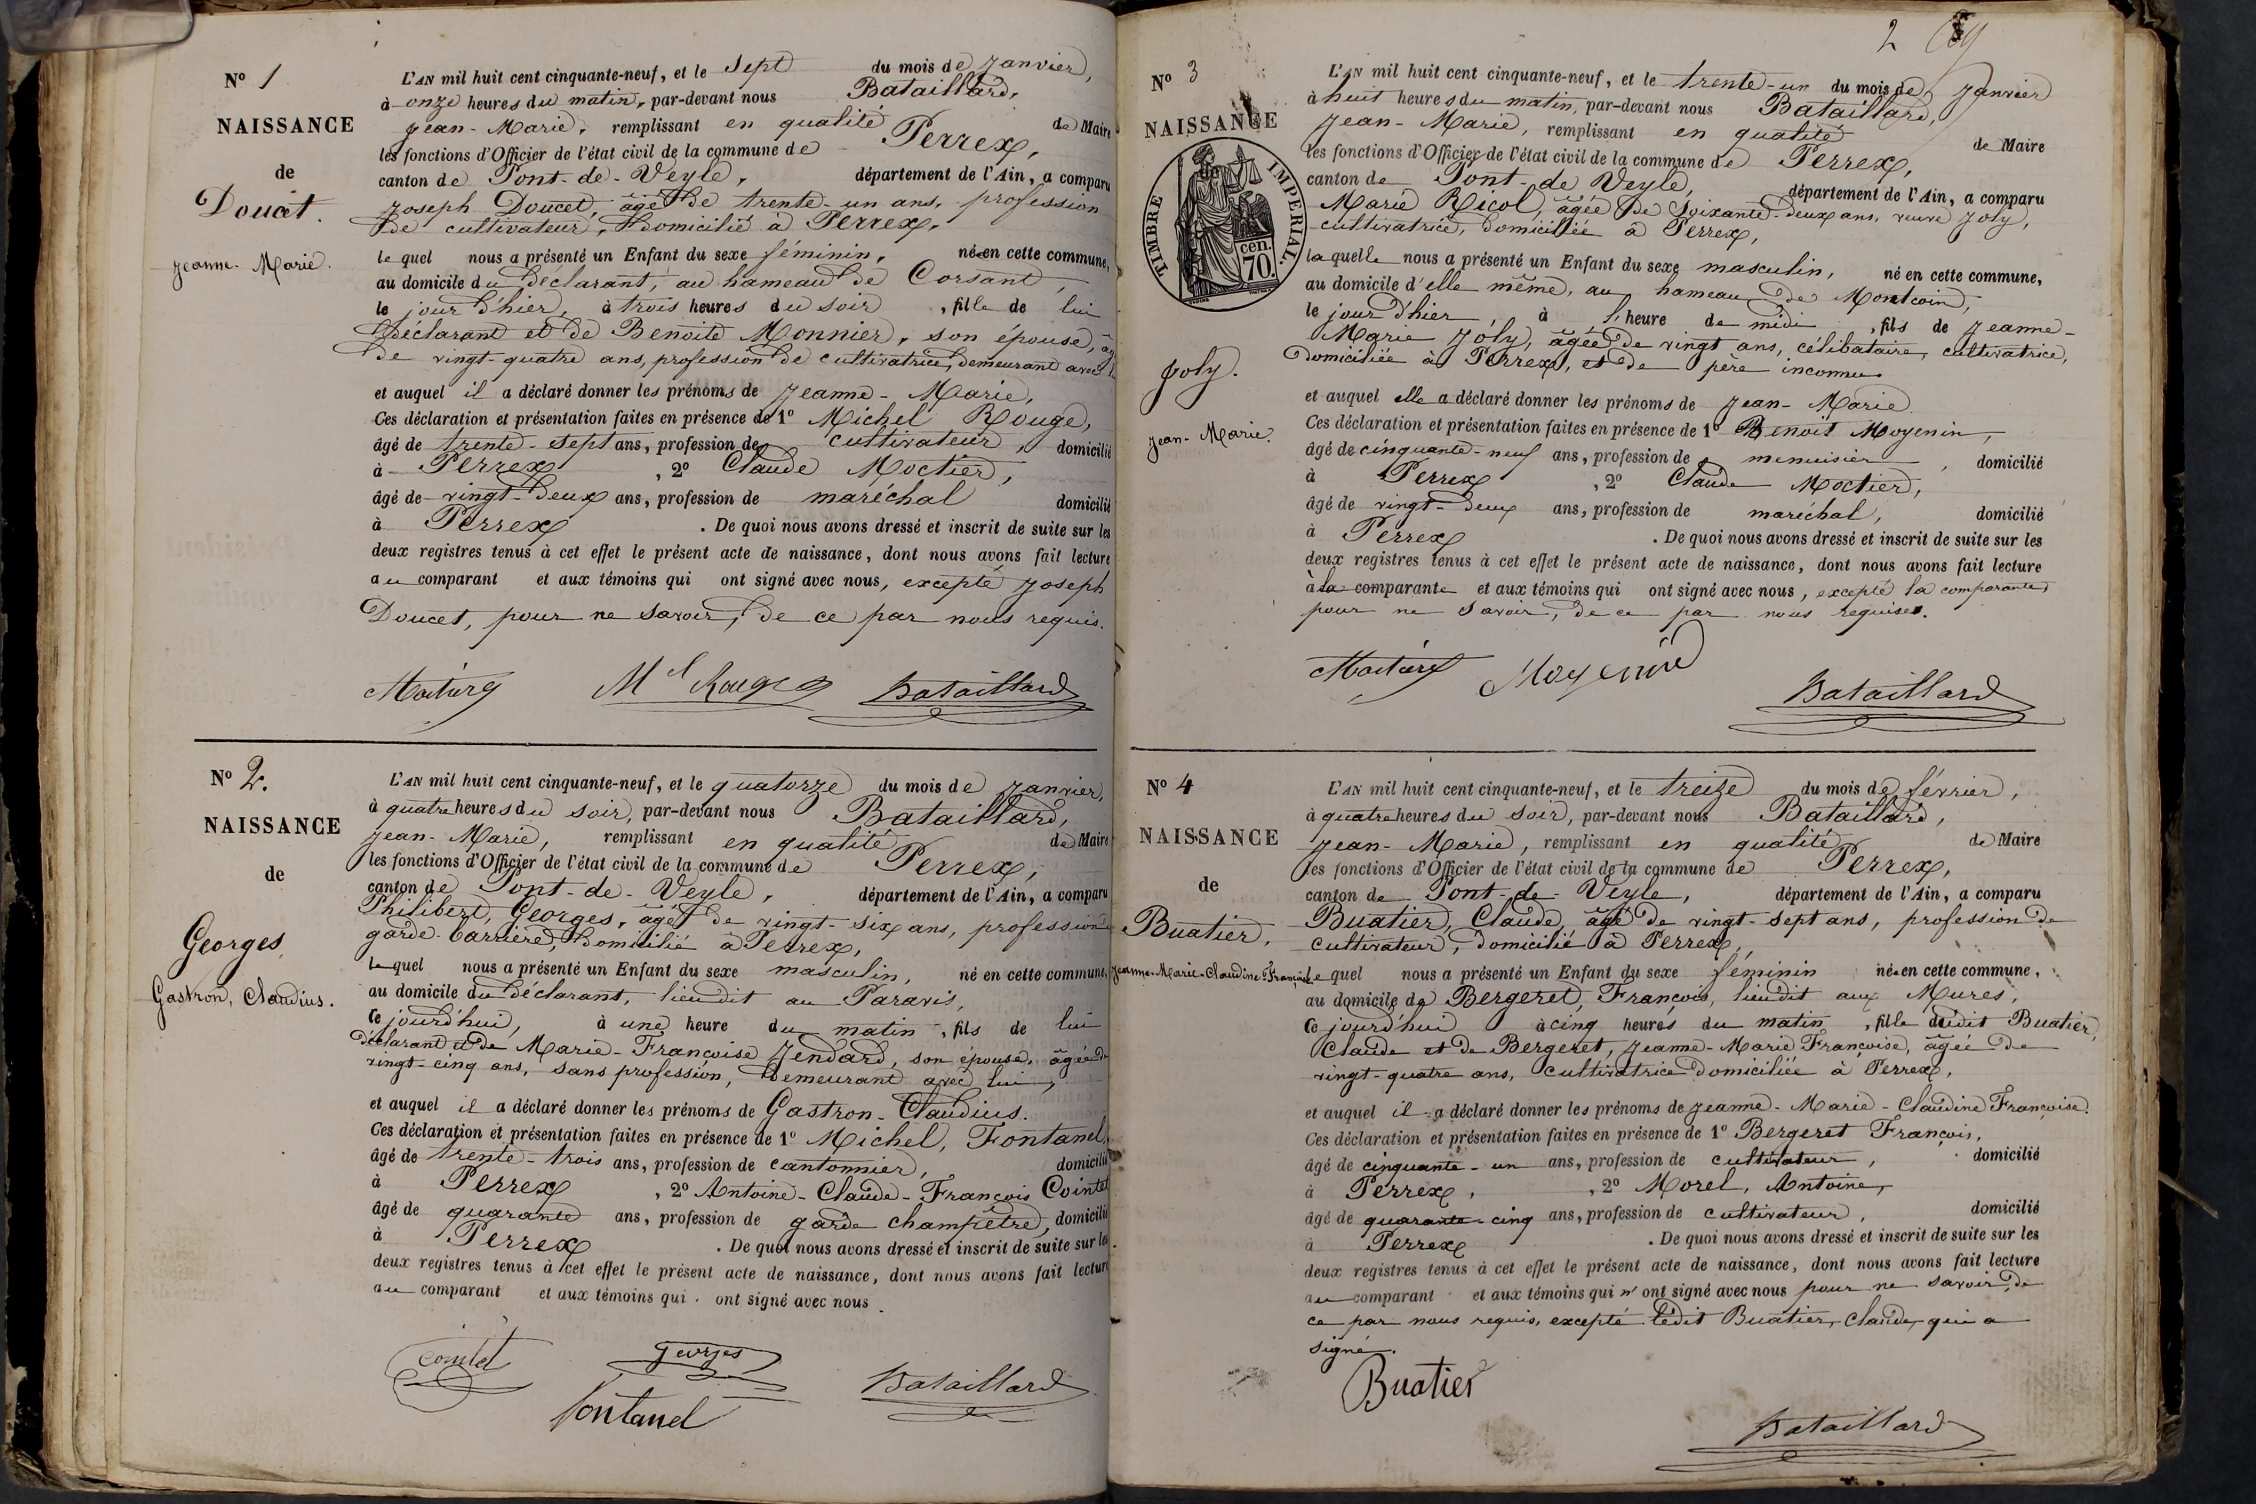 N° 1
NAISSANCE
de
Doucet.
Jeanne-Marie.
L'AN mil huit cent cinquante-neuf, et le sept du mois de Janvier,
à onze heures du matin, par-devant nous Bataillard,
Jean-Marie, remplissant en qualité de Maire
les fonctions d'Officier de l'état civil de la commune de Perrex,
canton de Pont-de-Veyle, département de l'Ain, a comparu
Joseph Doucet, âgé de trente-un ans, profession
de cultivateur, domicilié à Perrex,
lequel nous a présenté un Enfant du sexe féminin, née en cette commune,
au domicile du déclarant, au hameau de Corsant,
le jour d'hier, à trois heures du soir, fille de lui
déclarant et de Benoite Monnier, son épouse, âg
de vingt-quatre ans, profession de cultivatrice, demeurant avec
et auquel il a déclaré donner les prénoms de Jeanne-Marie,
Ces déclaration et présentation faites en présence de 1° Michel Rouge,
âgé de trente-sept ans, profession de cultivateur, domicilié
à Perrex, 2° Claude Moctier,
âgé de vingt-deux ans, profession de maréchal domicilié
à Perrex. De quoi nous avons dressé et inscrit de suite sur les
deux registres tenus à cet effet le présent acte de naissance, dont nous avons fait lecture
au comparant et aux témoins qui ont signé avec nous, excepté Joseph
Doucet, pour ne savoir, de ce par nous requis.
M l Rouge Bataillard
N° 2.
NAISSANCE
de
Georges,
Gastron, Claudius.
L'AN mil huit cent cinquante-neuf, et le quatorze du mois de Janvier,
à quatre heures du soir, par-devant nous Bataillard,
Jean-Marie, remplissant en qualité de Maire
les fonctions d'Officier de l'état civil de la commune de Perrex,
canton de Pont-de-Veyle, département de l'Ain, a comparu
Philibert, Georges, âgé de vingt-six ans, profession
garde-barrière, domicilié à Perrex,
lequel nous a présenté un Enfant du sexe masculin, né en cette commune,
au domicile du déclarant, lieu dit au Paravis,
Ce jourd'hui, à une heure du matin, fils de lui
déclarant et de Marie-Françoise Jendard, son épouse, âgée de
vingt-cinq ans, sans profession, demeurant avec lui,
et auquel il a déclaré donner les prénoms de Gastron-Claudius.
Ces déclaration et présentation faites en présence de 1° Michel, Fontanel,
âgé de trente-trois ans, profession de cantonnier, domicilié
à Perrex, 2° Antoine-Claude-François Cointet
âgé de quarante ans, profession de garde champêtre, domicilié
à Perrex. De quoi nous avons dressé et inscrit de suite sur les
deux registres tenus à cet effet le présent acte de naissance, dont nous avons fait lecture
au comparant et aux témoins qui ont signé avec nous.
Cointet Georges
Fontanel Bataillard
2
N° 3
NAISSANCE
TIMBRE IMPÉRIAL.
70 cen.
Joly.
Jean-Marie.
L'AN mil huit cent cinquante-neuf, et le trente-un du mois de Janvier
à huit heures du matin, par-devant nous Bataillard,
Jean-Marie, remplissant en qualité de Maire
les fonctions d'Officier de l'état civil de la commune de Perrex,
canton de Pont-de-Veyle, département de l'Ain, a comparu
Marie Ricol, âgée de soixante-deux ans, veuve Joly,
cultivatrice, domiciliée à Perrex,
laquelle nous a présenté un Enfant du sexe masculin, né en cette commune,
au domicile d'elle même, au hameau de Montcoin,
le jour d'hier, à l'heure de midi, fils de Jeanne-
Marie Joly, âgée de vingt ans, célibataire, cultivatrice,
domiciliée à Perrex, et de père inconnu.
et auquel elle a déclaré donner les prénoms de Jean-Marie
Ces déclaration et présentation faites en présence de 1° Benoit Moyenin,
âgé de cinquante-neuf ans, profession de menuisier, domicilié
à Perrex, 2° Claude Moctier,
âgé de vingt-deux ans, profession de maréchal, domicilié
à Perrex. De quoi nous avons dressé et inscrit de suite sur les
deux registres tenus à cet effet le présent acte de naissance, dont nous avons fait lecture
à la comparante et aux témoins qui ont signé avec nous, excepté la comparante,
pour ne savoir, de ce par nous requises.
Moyenin Bataillard
N° 4
NAISSANCE
de
Buatier,
Jeanne-Marie-Claudine-Françoise
L'AN mil huit cent cinquante-neuf, et le treize du mois de février,
à quatre heures du soir, par-devant nous Bataillard,
Jean-Marie, remplissant en qualité de Maire
les fonctions d'Officier de l'état civil de la commune de Perrex,
canton de Pont-de-Veyle, département de l'Ain, a comparu
Buatier, Claude, âgé de vingt-sept ans, profession de
cultivateur, domicilié à Perrex,
lequel nous a présenté un Enfant du sexe féminin née en cette commune,
au domicile de Bergeret, François, lieu dit aux Mures,
Ce jourd'hui à cinq heures du matin, fille dudit Buatier,
Claude et de Bergeret, Jeanne-Marie Françoise, âgée de
vingt-quatre ans, cultivatrice domiciliée à Perrex,
et auquel il a déclaré donner les prénoms de Jeanne-Marie-Claudine Françoise.
Ces déclaration et présentation faites en présence de 1° Bergeret François,
âgé de cinquante-un ans, profession de cultivateur, domicilié
à Perrex, 2° Morel, Antoine,
âgé de quarante-cinq ans, profession de cultivateur, domicilié
à Perrex. De quoi nous avons dressé et inscrit de suite sur les
deux registres tenus à cet effet le présent acte de naissance, dont nous avons fait lecture
au comparant et aux témoins qui n'ont signé avec nous pour ne savoir, de
ce par nous requis, excepté ledit Buatier, Claude, qui a
signé.
Buatier
Bataillard